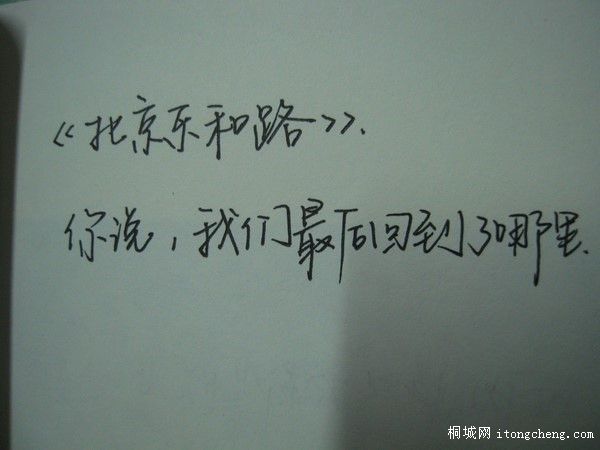 《北京东和路》.
你说，我们最后回到了哪里.
桐城网 itongcheng.com